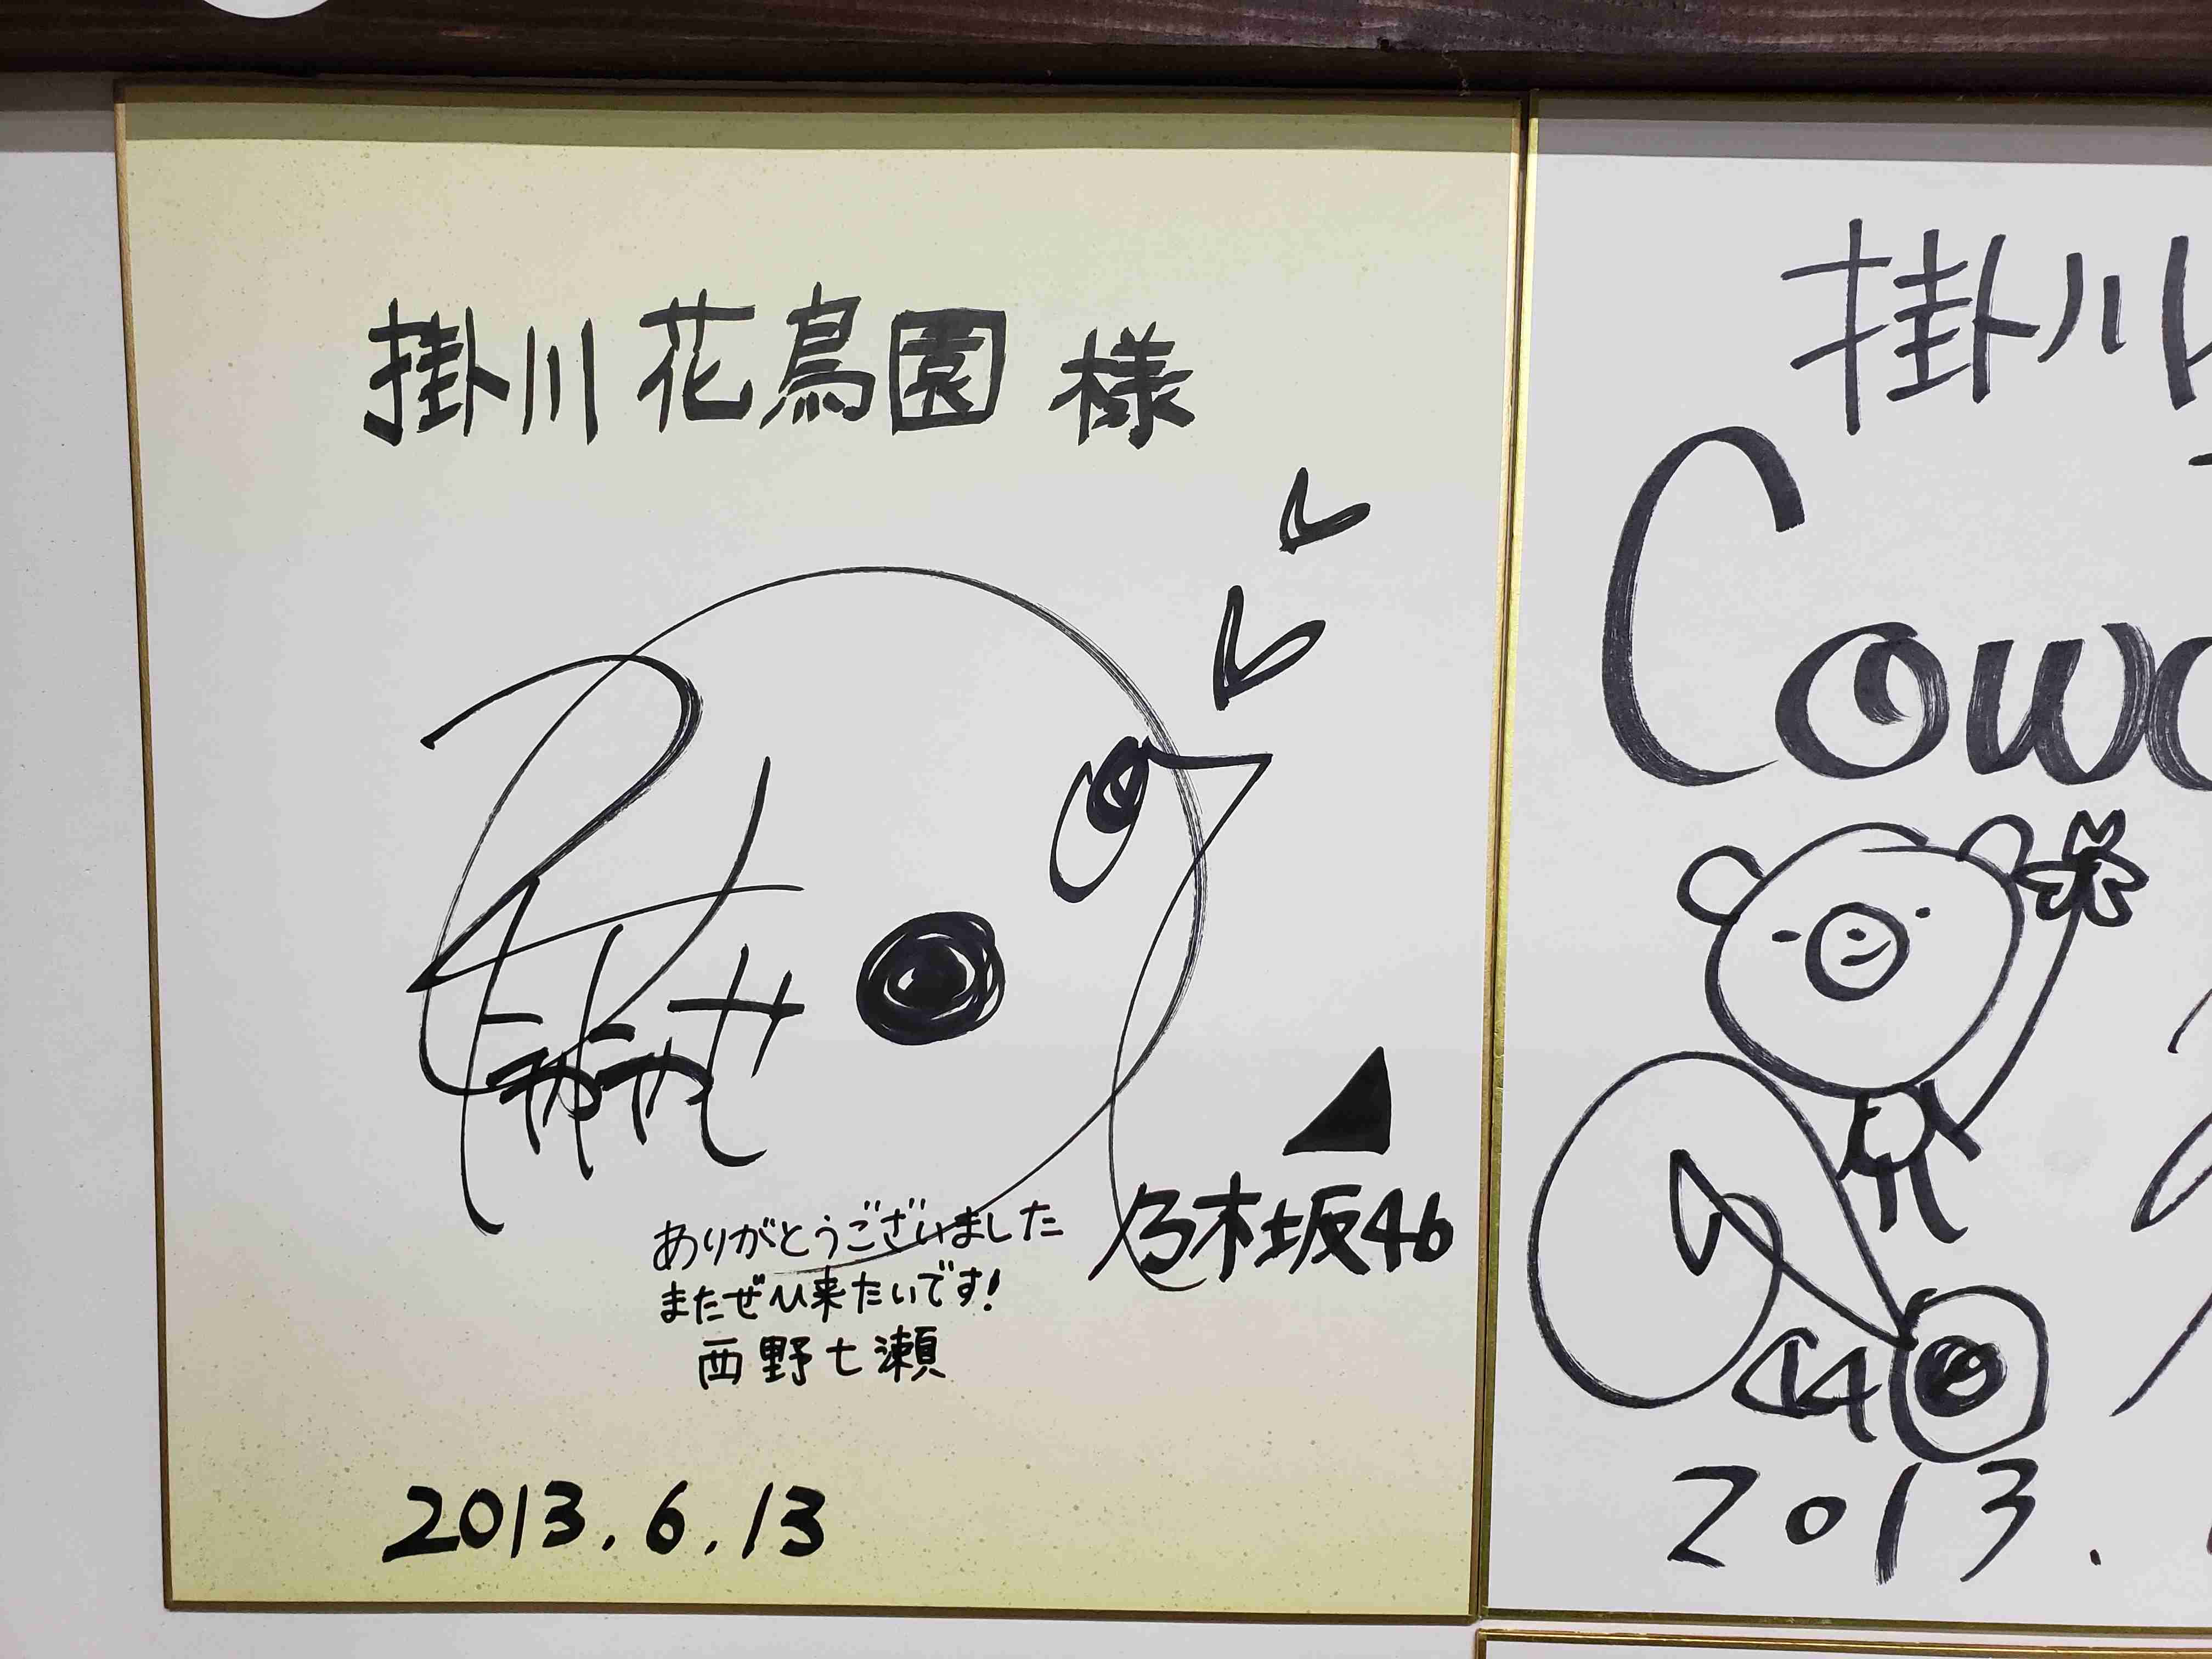 掛川花鳥園 様
乃木坂46
ありがとうございました
またぜひ来たいです!
西野七瀬
2013.6.13
掛川
Cow
2013.